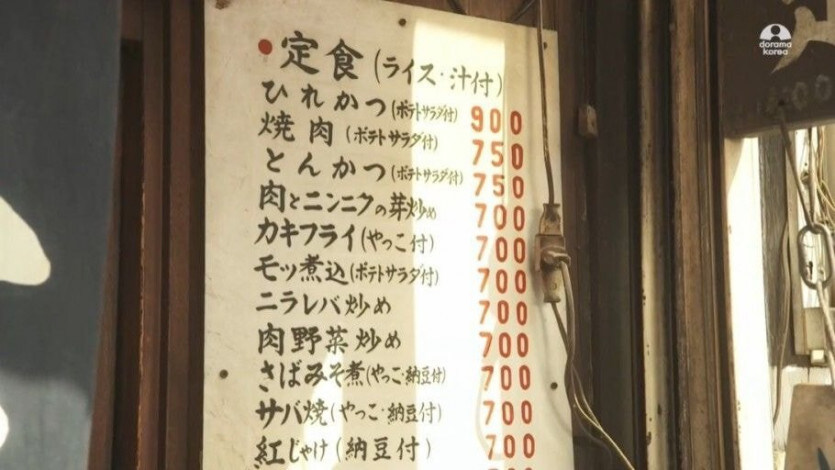 ●定食(ライス・汁付)
ひれかつ(ポテトサラダ付) 900
焼肉(ポテトサラダ付) 750
とんかつ(ポテトサラダ付) 750
肉とニンニクの芽炒め 700
カキフライ(やっこ付) 700
モツ煮込(ポテトサラダ付) 700
ニラレバ炒め 700
肉野菜炒め 700
さばみそ煮(やっこ・納豆付) 700
サバ焼(やっこ・納豆付) 700
紅じゃけ(納豆付) 700
dorama
korea